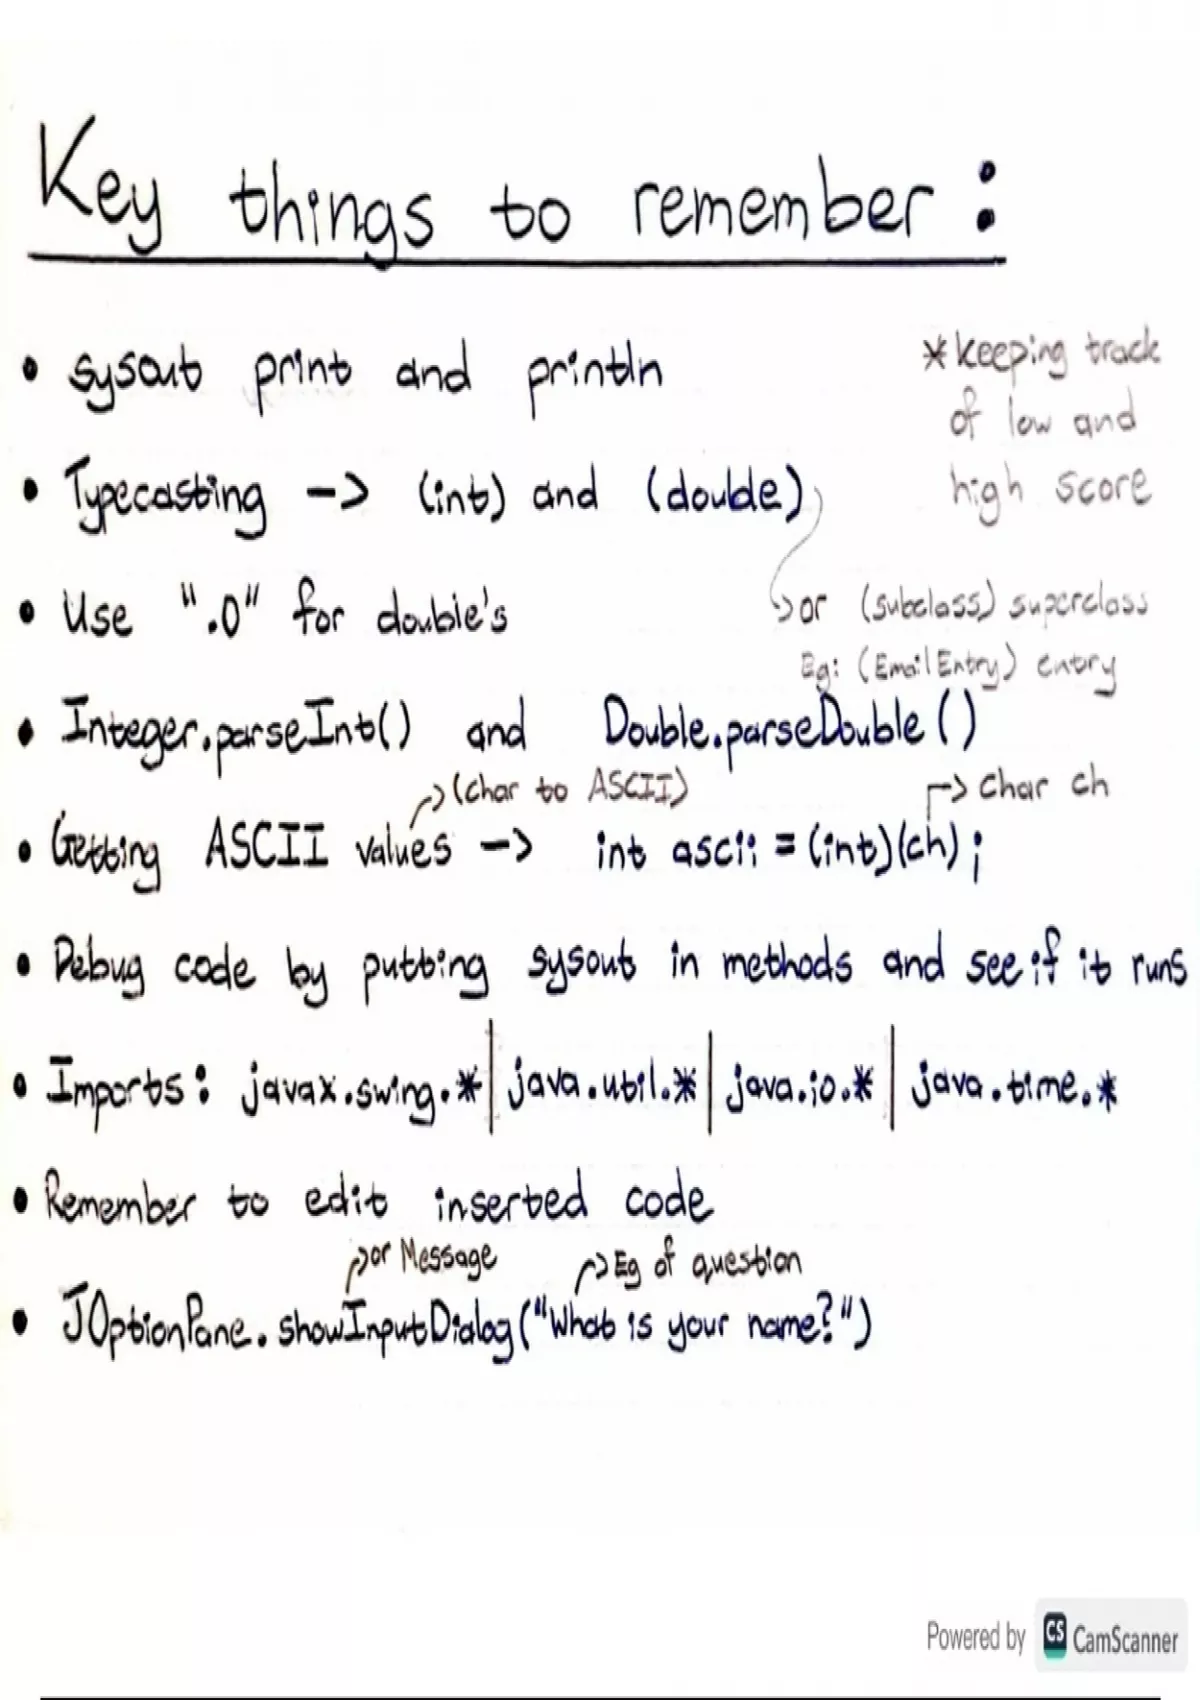 Key things to remember :
• sysout print and println
* keeping track
of low and
high score
• Typecasting -> (int) and (double)
or (subclass) superclass
Eg: (EmailEntry) entry
• Use ".0" for double's
• Integer.parseInt() and Double.parseDouble()
(char to ASCII)
-> char ch
• Getting ASCII values -> int ascii = (int)(ch);
• Debug code by putting sysout in methods and see if it runs
• Imports: javax.swing.* | java.util.* | java.io.* | java.time.*
• Remember to edit inserted code
or Message
Eg of question
• JOptionPane.showInputDialog("What is your name?")
Powered by CS CamScanner